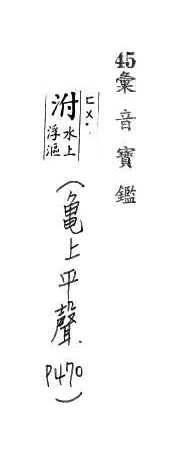 45彙音寶鑑
ㄈㄨ·
泭水上浮漚
(龜上平聲.P470)